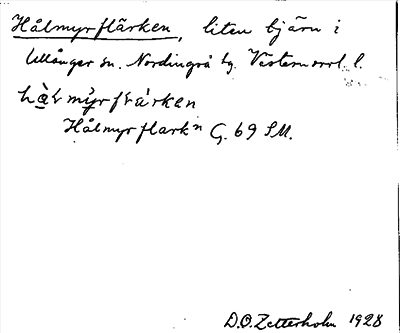 Hålmyrflärken, liten tjärn i
Ullånger sn. Nordingrå tg. Västernorrl. l.
Hålmyrflarkn G. 69 SM.
D.O. Zetterholm 1928